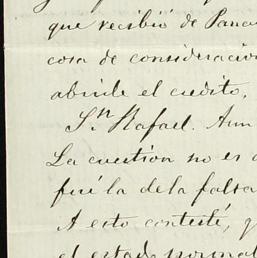 que recibió de Pana
cosa de consideracion
abrirle el credito,
Sn Rafael. Aun
La cuestion no es
fué la de la falta
A esto contesté, q
el estado normal